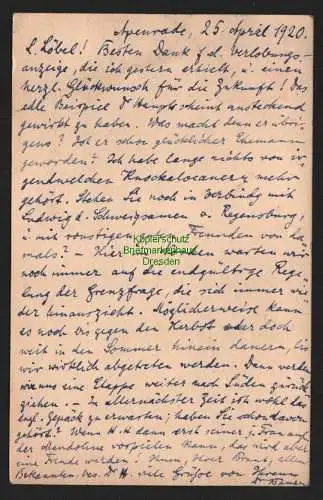 Apenrade, 25. April 1920.
L. Löbel! Besten Dank f. d. Verlobungs-
anzeige, die ich gestern erhielt, u. einen
herzl. Glückwunsch für die Zukunft! Das
edle Beispiel Dr Haupts scheint ansteckend
gewirkt zu haben. Was macht denn er übri-
gens? Ist er schon glücklicher Ehemann
geworden? Ich habe lange nichts von ir-
gendwelchen Knockaloeanern mehr
gehört. Stehen Sie noch in Verbindg mit
Ludwig d. Schweigsamen v. Regensburg,
u. mit sonstigen Freunden von da-
mals? – Hier warten wir
Köpierschutz
Briefmarkenhaus
Dresden
noch immer auf die endgültige Rege-
lung der Grenzfrage, die sich immer wie-
der hinauszieht. Möglicherweise kann
es noch bis gegen den Herbst oder doch
weit in den Sommer hinein dauern, bis
wir wirklich abgetreten werden. Dann werden
wir uns eine Etappe weiter nach Süden zurück
ziehen. – In allernächster Zeit ist wohl das
engl. Gepäck zu erwarten; haben Sie schon davon
gehört? Wenn H. H. dann erst seiner j. Frau auf
der Mandoline vorspielen kann, das wird aber
eine Freude werden! Ihnen, Ihrer Braut, allen
Bekannten, bes. Dr H. viele Grüsse von Ihrem